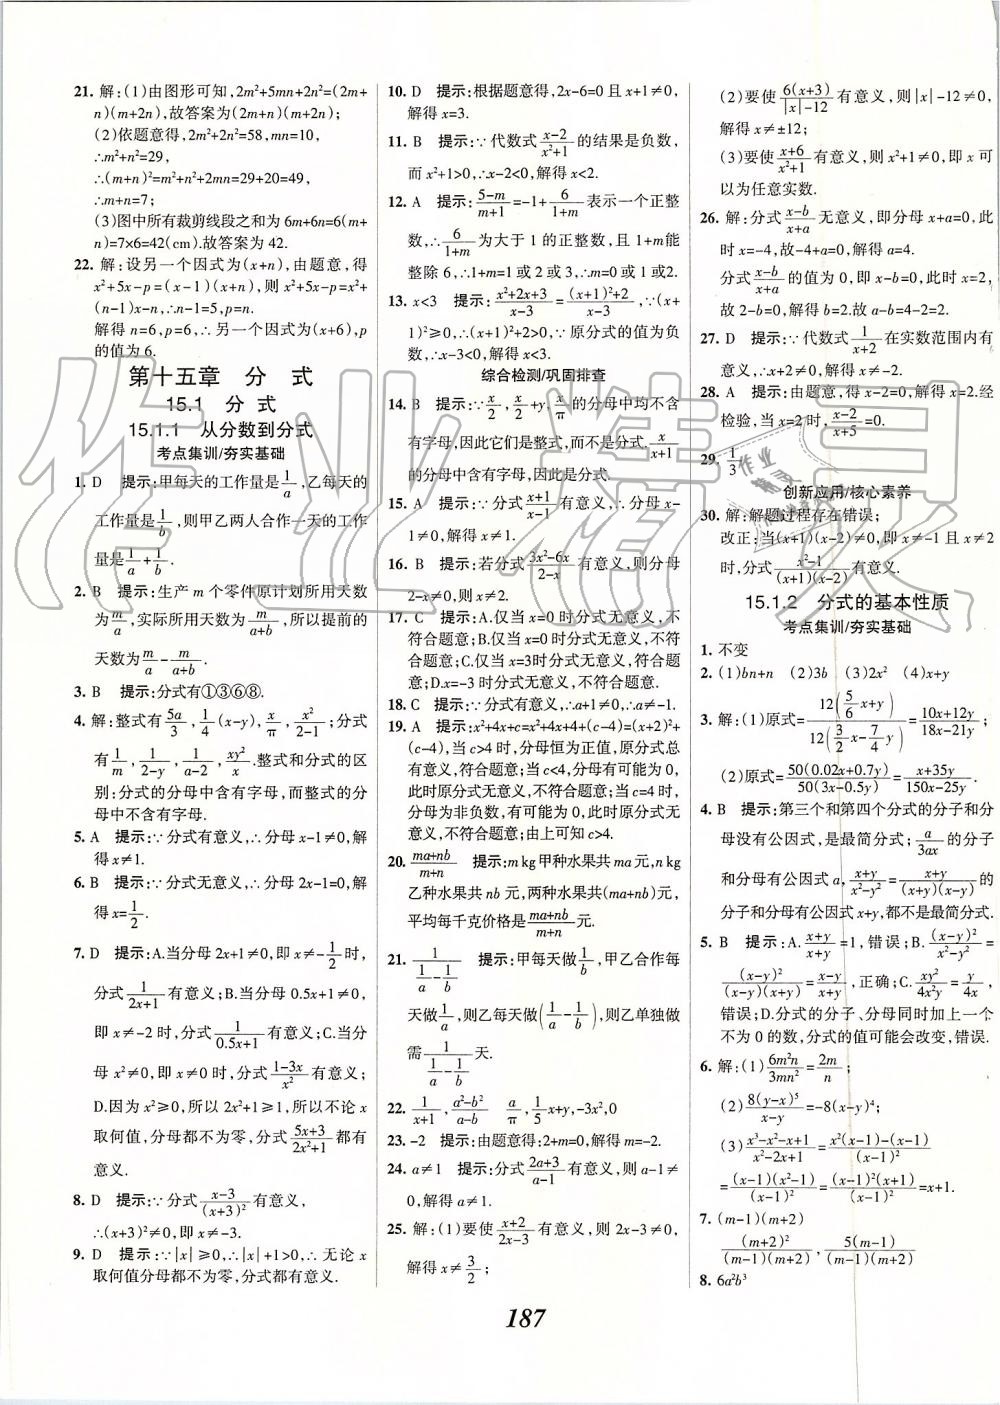 21. 解:(1)由图形可知,2m²+5mn+2n²=(2m+
n)(m+2n),故答案为(2m+n)(m+2n);
(2)依题意得,2m²+2n²=58,mn=10,
∴m²+n²=29,
∴(m+n)²=m²+n²+2mn=29+20=49,
∴m+n=7;
(3)图中所有裁剪线段之和为6m+6n=6(m+
n)=7×6=42(cm).故答案为42.
22. 解:设另一个因式为(x+n),由题意,得
x²+5x-p=(x-1)(x+n),则x²+5x-p=x²+
(n-1)x-n,∴n-1=5,p=n.
解得n=6,p=6,∴另一个因式为(x+6),p
的值为6.
第十五章 分 式
15.1 分 式
15.1.1 从分数到分式
考点集训/夯实基础
1. D 提示:甲每天的工作量是1/a,乙每天的
工作量是1/b,则甲乙两人合作一天的工作
量是1/a+1/b.
2. B 提示:生产m个零件原计划所用天数
为m/a,实际所用天数为m/(a+b),所以提前的
天数为m/a-m/(a+b).
3. B 提示:分式有①③⑥⑧.
4. 解:整式有5a/3,1/4(x-y),x/π,x²/(2-1);分式
有1/m,1/(2-y),1/(a-2),xy²/x.分式和分式的区
别:分式的分母中含有字母,而整式的分
母中不含有字母.
5. A 提示:∵分式有意义,∴分母x-1≠0,解
得x≠1.
6. B 提示:∵分式无意义,∴分母2x-1=0,解
得x=1/2.
7. D 提示:A.当分母2x+1≠0,即x≠-1/2时,
分式1/(2x+1)有意义;B.当分母0.5x+1≠0,
即x≠-2时,分式1/(0.5x+1)有意义;C.当分
母x²≠0,即x≠0时,分式(1-3x)/x²有意义;
D.因为x²≥0,所以2x²+1≥1,所以不论x
取何值,分母都不为零,分式(5x+3)/(2x²+1)都有
意义.
8. D 提示:∵分式(x-3)/(x+3)²有意义,
∴(x+3)²≠0,即x≠-3.
9. D 提示:∵|x|≥0,∴|x|+1>0,∴无论x
取何值分母都不为零,分式都有意义.
10. D 提示:根据题意得,2x-6=0且x+1≠0,
解得x=3.
11. B 提示:∵代数式(x-2)/(x²+1)的结果是负数,
而x²+1>0,∴x-2<0,解得x<2.
12. A 提示:(5-m)/(m+1)=-1+6/(1+m)表示一个正整
数,∴6/(1+m)为大于1的正整数,且1+m能
整除6,∴1+m=1或2或3,∴m=0或1或2.
13. x<3 提示:(x²+2x+3)/(x-3)=((x+1)²+2)/(x-3),∵(x+
1)²≥0,∴(x+1)²+2>0,∵原分式的值为负
数,∴x-3<0,解得x<3.
综合检测/巩固排查
14. B 提示:∵x/2,x/2+y,x/π的分母中均不含
有字母,因此它们是整式,而不是分式.x/(x+1)
的分母中含有字母,因此是分式.
15. A 提示:∵分式(x+1)/(x-1)有意义,∴分母x-
1≠0,解得x≠1.
16. B 提示:若分式(3x²-6x)/(2-x)有意义,则分母
2-x≠0,则x≠2.
17. C 提示:A.仅当x=0时分式无意义,不
符合题意;B.仅当x=0时分式无意义,不符
合题意;C.仅当x=3时分式无意义,符合题
意;D.x=-3时分式无意义,不符合题意.
18. C 提示:∵分式有意义,∴a+1≠0,∴a≠-1.
19. A 提示:x²+4x+c=x²+4x+4+(c-4)=(x+2)²+
(c-4),当c>4时,分母恒为正值,原分式总
有意义,符合题意;当c<4,分母有可能为0,
此时原分式无意义,不符合题意;当c=4时,
分母为非负数,有可能为0,此时原分式无
意义,不符合题意;由上可知c>4.
20. (ma+nb)/(m+n) 提示:m kg甲种水果共ma元,n kg
乙种水果共nb元,两种水果共(ma+nb)元,
平均每千克价格是(ma+nb)/(m+n)元.
21. 1/(1/a-1/b) 提示:甲每天做1/b,甲乙合作每
天做1/a,则乙每天做(1/a-1/b),则乙单独做
需1/(1/a-1/b)天.
22. 1/(x+1),(a²-b²)/(a-b) a/π,1/5x+y,-3x²,0
23. -2 提示:由题意得:2+m=0,解得m=-2.
24. a≠1 提示:分式(2a+3)/(a-1)有意义,则a-1≠
0,解得a≠1.
25. 解:(1)要使(x+2)/(2x-3)有意义,则2x-3≠0,
解得x≠3/2;
(2)要使6(x+3)/(|x|-12)有意义,则|x|-12≠0,
解得x≠±12;
(3)要使(x+6)/(x²+1)有意义,则x²+1≠0,即x可
以为任意实数.
26. 解:分式(x-b)/(x+a)无意义,即分母x+a=0,此
时x=-4,故-4+a=0,解得a=4.
分式(x-b)/(x+a)的值为0,即x-b=0,此时x=2,
故2-b=0,解得b=2.故a-b=4-2=2.
27. D 提示:∵代数式1/(x+2)在实数范围内有
意义,∴x+2≠0,解得x≠-2.
28. A 提示:由题意,得x-2=0,解得x=2.经
检验,当x=2时,(x-2)/(x+5)=0.
29. 1/3
创新应用/核心素养
30. 解:解题过程存在错误;
改正:当(x+1)(x-2)≠0,即x≠-1且x≠2
时,分式(x²-1)/((x+1)(x-2))有意义.
15.1.2 分式的基本性质
考点集训/夯实基础
1. 不变
2. (1)bn+n (2)3b (3)2x² (4)x+y
3. 解:(1)原式=12(5/6x+y)/12(3/2x-7/4y)=(10x+12y)/(18x-21y);
(2)原式=50(0.02x+0.7y)/50(3x-0.5y)=(x+35y)/(150x-25y).
4. B 提示:第三个和第四个分式的分子和分
母没有公因式,是最简分式;a/3ax的分子
和分母有公因式a,(x+y)/(x²-y²)=(x+y)/((x+y)(x-y))的
分子和分母有公因式x+y,都不是最简分式.
5. B 提示:A.(x+y)/(x+y)=1,错误;B.(x-y)²/(x²-y²)=
(x-y)²/((x-y)(x+y))=(x-y)/(x+y),正确;C.xy²/4x²y=y/4x,
错误;D.分式的分子、分母同时加上一个
不为0的数,分式的值可能会改变,错误.
6. 解:(1)6m²n/3mn²=2m/n;
(2)8(y-x)⁵/(x-y)=-8(x-y)⁴;
(3)(x³-x²-x+1)/(x²-2x+1)=(x²(x-1)-(x-1))/(x-1)²
=(x-1)(x²-1)/(x-1)²=(x-1)²(x+1)/(x-1)²=x+1.
7. (m-1)(m+2)
(m+2)²/((m-1)(m+2)),5(m-1)/((m-1)(m+2))
8. 6a²b³
187
作业精灵
作业精灵